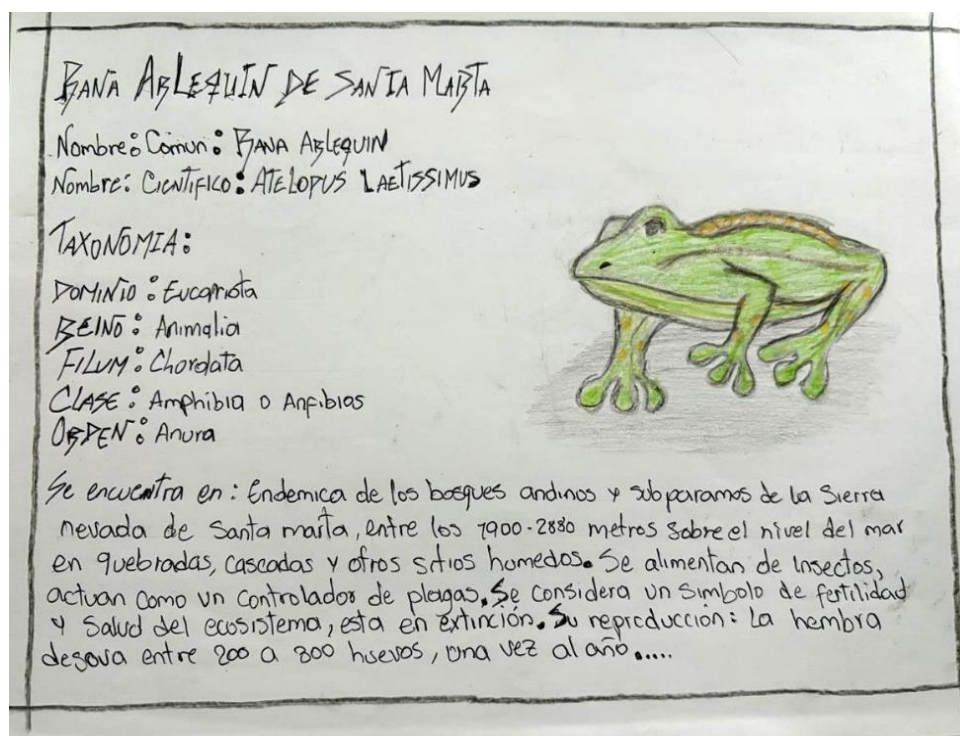 RANA ARLEQUIN DE SANTA MARTA
Nombre: Comun: RANA ARLEQUIN
Nombre: CIENTIFICO: ATELOPUS LAETISSIMUS
TAXONOMIA:
DOMINIO: Eucariota
REINO: Animalia
FILUM: Chordata
CLASE: Amphibia o Anfibios
ORDEN: Anura
Se encuentra en: Endemica de los bosques andinos y subparamos de la Sierra
nevada de Santa marta, entre los 1900-2880 metros sobre el nivel del mar
en quebradas, cascadas y otros sitios humedos. Se alimentan de insectos,
actuan como un controlador de plagas. Se considera un simbolo de fertilidad
y Salud del ecosistema, esta en extinción. Su reproduccion: La hembra
desova entre 200 a 800 huevos, una vez al año.....